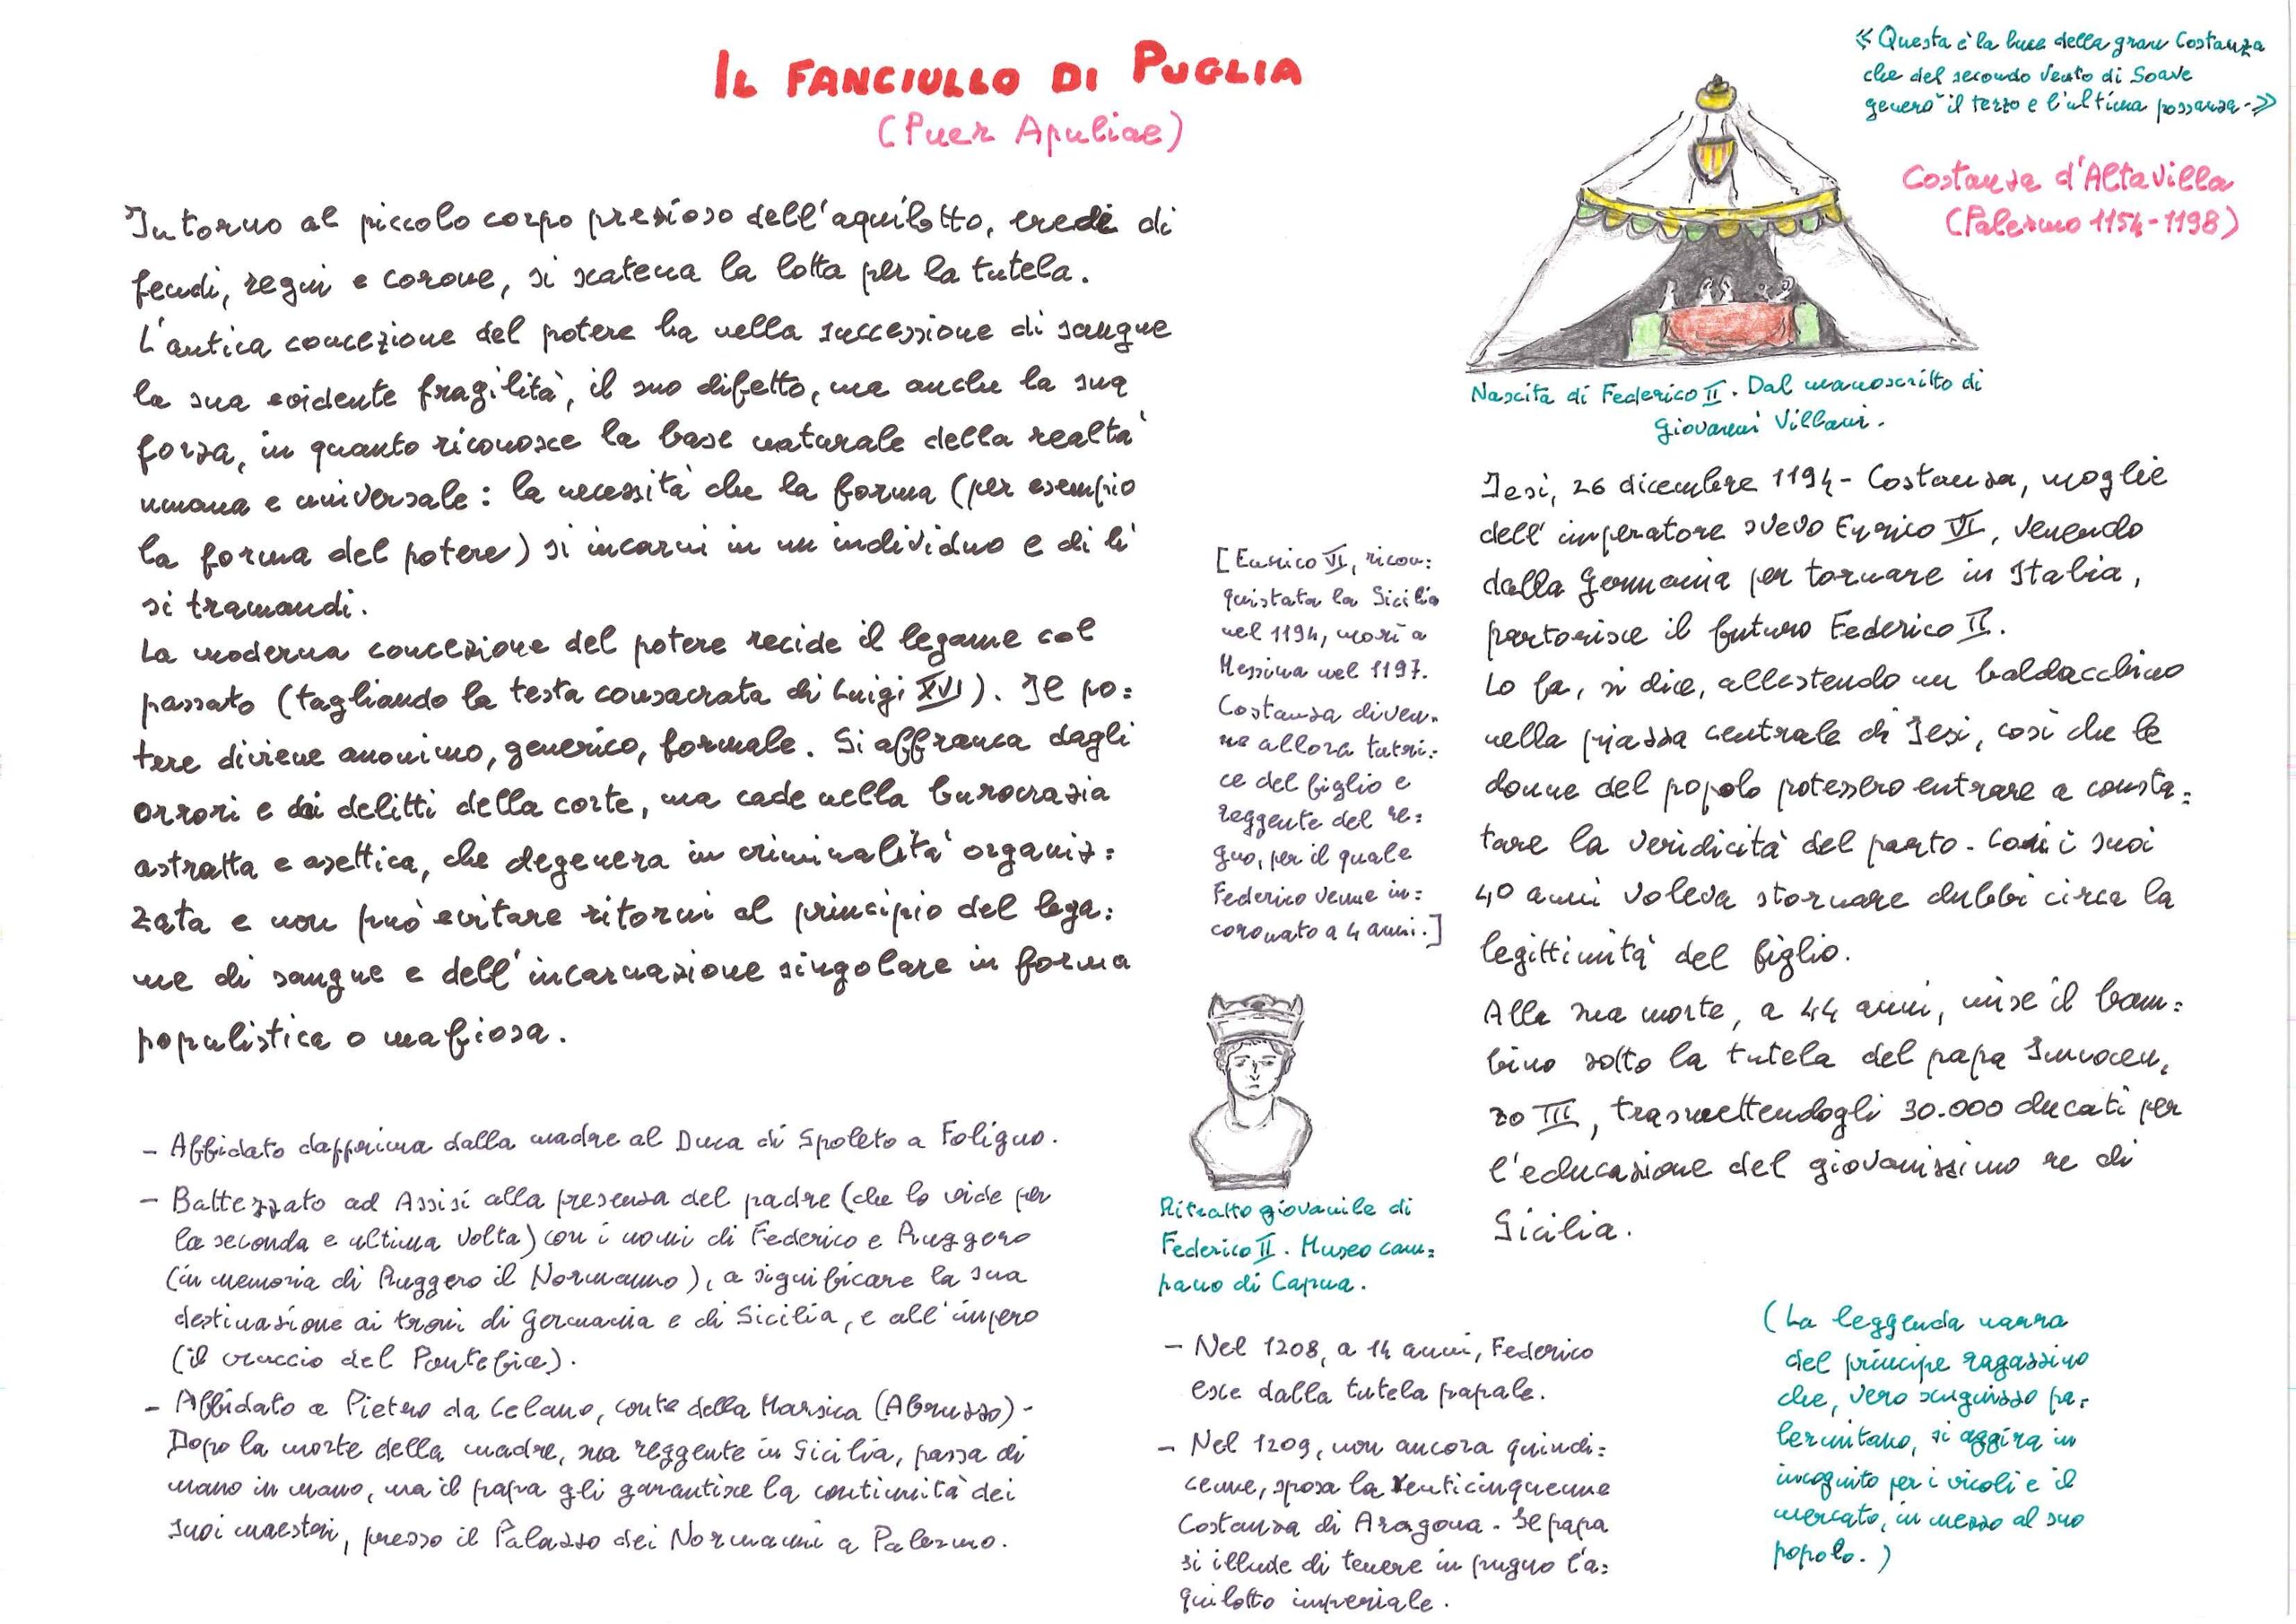 IL FANCIULLO DI PUGLIA
(Puer Apuliae)
Intorno al piccolo corpo prezioso dell'aquilotto, erede di
feudi, regni e corone, si scatena la lotta per la tutela.
L'antica concezione del potere ha nella successione di sangue
la sua evidente fragilità, il suo difetto, ma anche la sua
forza, in quanto riconosce la base naturale della realtà
umana e universale: la necessità che la forma (per esempio
la forma del potere) si incarni in un individuo e di lì
si tramandi.
La moderna concezione del potere recide il legame col
passato (tagliando la testa consacrata di Luigi XVI). Il po=
tere diviene anonimo, generico, formale. Si affranca dagli
orrori e dai delitti della corte, ma cade nella burocrazia
astratta e asettica, che degenera in criminalità organiz=
zata e non può evitare ritorni al principio del lega=
me di sangue e dell'incarnazione singolare in forma
populistica o mafiosa.
- Affidato dapprima dalla madre al Duca di Spoleto a Foligno.
- Battezzato ad Assisi alla presenza del padre (che lo vide per
la seconda e ultima volta) con i nomi di Federico e Ruggero
(in memoria di Ruggero il Normanno), a significare la sua
destinazione ai troni di Germania e di Sicilia, e all'impero
(il cruccio del Pontefice).
- Affidato a Pietro da Celano, conte della Marsica (Abruzzo)-
Dopo la morte della madre, sua reggente in Sicilia, passa di
mano in mano, ma il papa gli garantisce la continuità dei
suoi maestri, presso il Palazzo dei Normanni a Palermo.
«Questa è la luce della gran Costanza
che del secondo vento di Soave
generò il terzo e l'ultima possanza-»
Costanza d'Altavilla
(Palermo 1154-1198)
Nascita di Federico II. Dal manoscritto di
Giovanni Villani.
[Enrico VI, ricon=
quistata la Sicilia
nel 1194, morì a
Messina nel 1197.
Costanza diven=
ne allora tutri=
ce del figlio e
reggente del re=
gno, per il quale
Federico venne in=
coronato a 4 anni.]
Ritratto giovanile di
Federico II. Museo cam=
pano di Capua.
Jesi, 26 dicembre 1194- Costanza, moglie
dell'imperatore svevo Enrico VI, venendo
dalla Germania per tornare in Italia,
partorisce il futuro Federico II.
Lo fa, si dice, allestendo un baldacchino
nella piazza centrale di Jesi, così che le
donne del popolo potessero entrare a consta=
tare la veridicità del parto- Con i suoi
40 anni voleva stornare dubbi circa la
legittimità del figlio.
Alla sua morte, a 44 anni, mise il bam=
bino sotto la tutela del papa Innocen=
zo III, trasmettendogli 30.000 ducati per
l'educazione del giovanissimo re di
Sicilia.
- Nel 1208, a 14 anni, Federico
esce dalla tutela papale.
- Nel 1209, non ancora quindi=
cenne, sposa la venticinquenne
Costanza di Aragona- Il papa
si illude di tenere in pugno l'a=
quilotto imperiale.
(La leggenda narra
del principe ragazzino
che, vero scugnizzo pa=
lermitano, si aggira in
incognito per i vicoli e il
mercato, in mezzo al suo
popolo.)